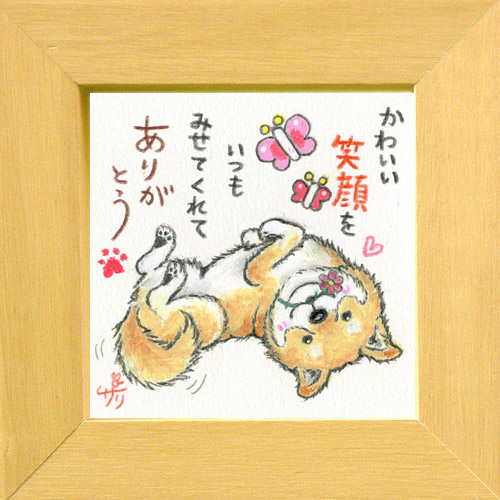 かわいい
笑顔を
いつも
みせてくれて
ありがとう